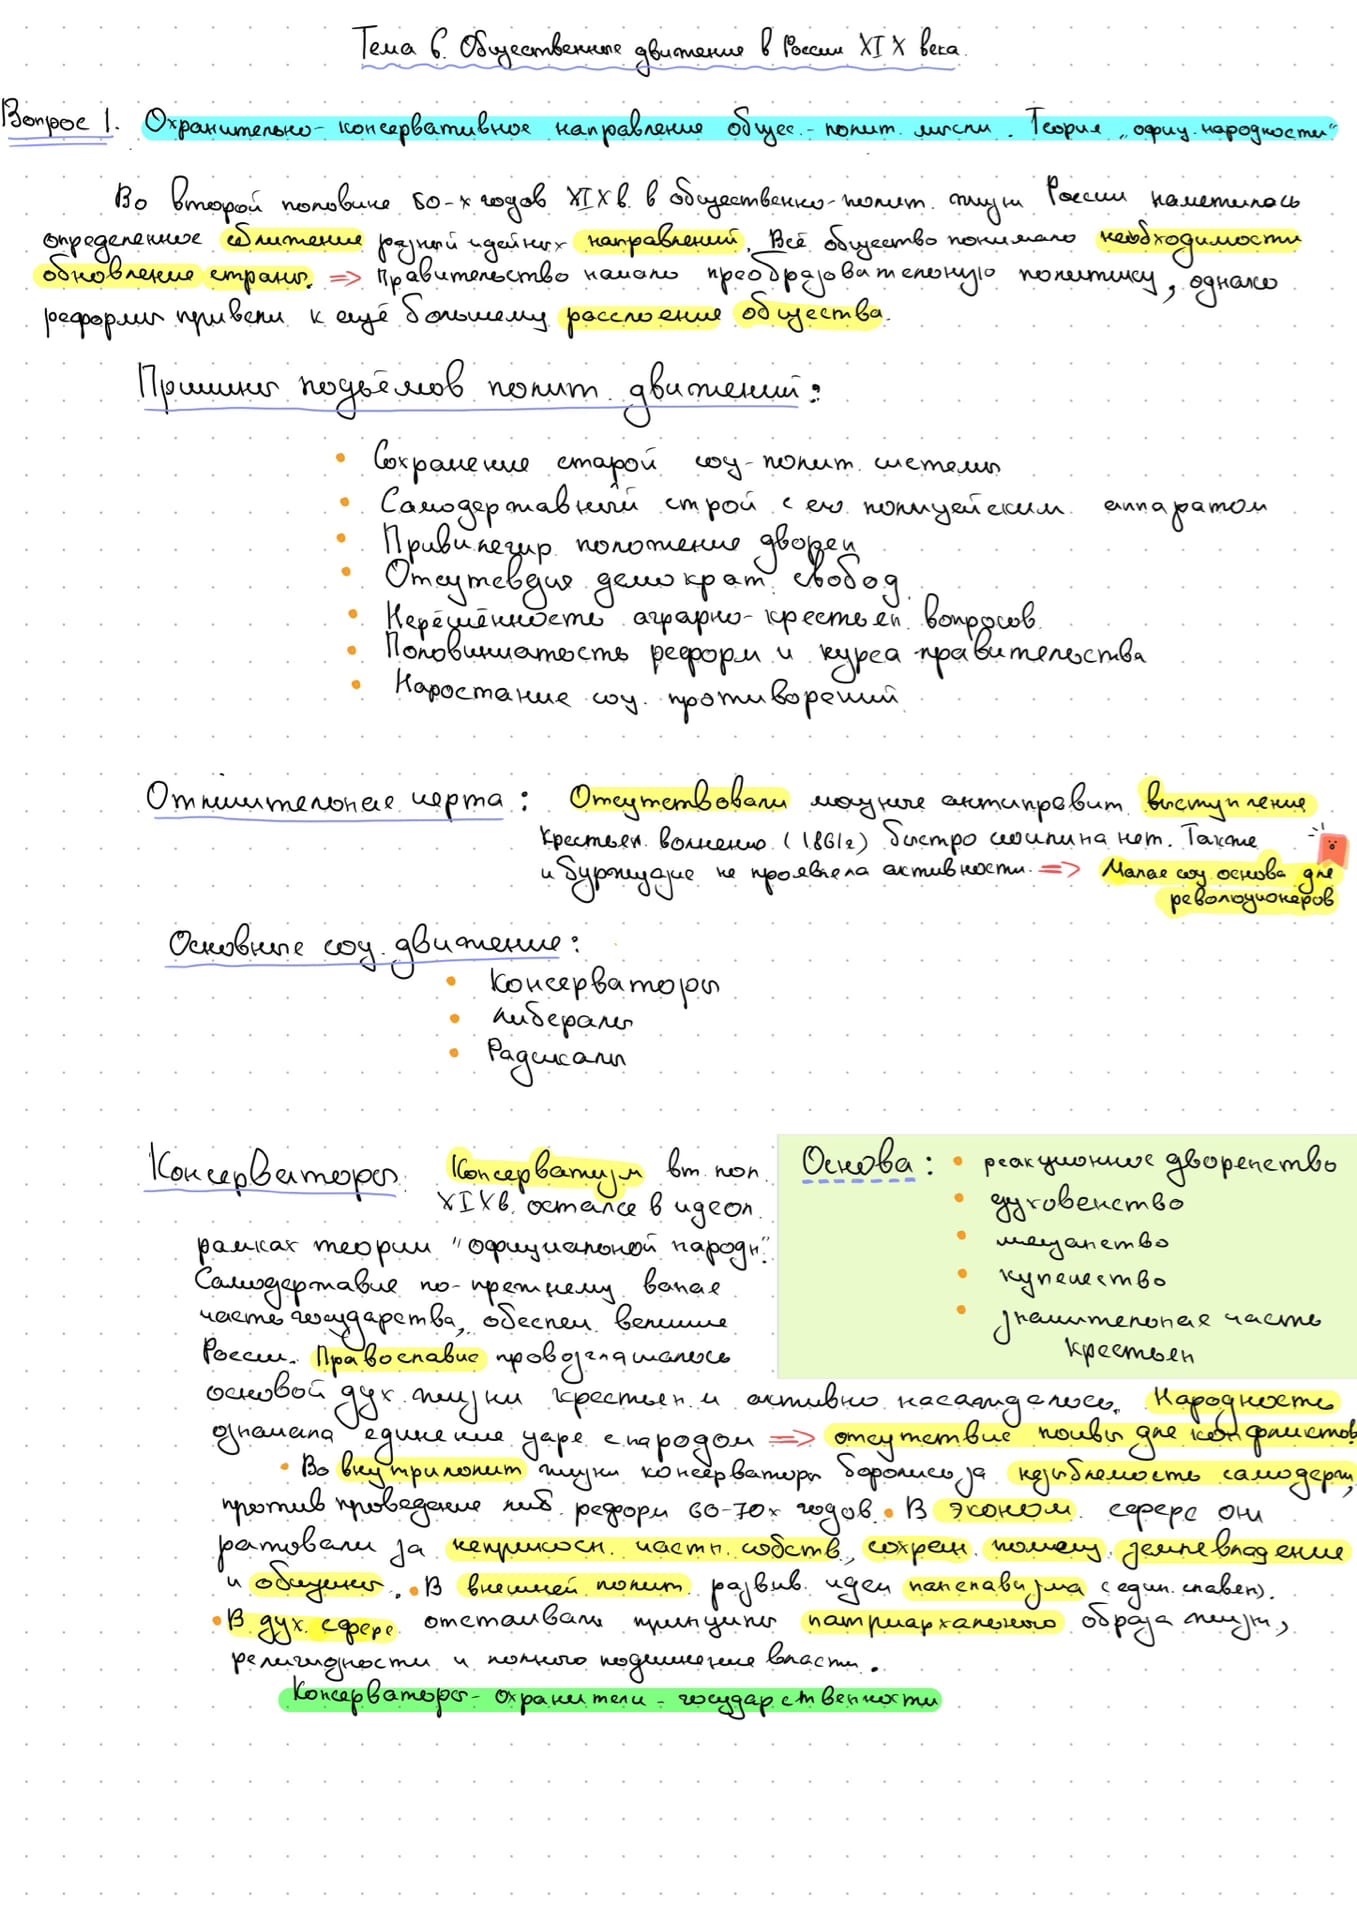 Тема 6. Общественные движение в России XIX века.
Вопрос 1. Охранительно-консервативное направление общес.-полит. мысли. Теория „офиц. народности"
Во второй половине 50-х годов XIX в. в общественно-полит. жизни России наметилось
определенное сближение разный идейных направлений. Всё общество понимало необходимости
обновление страны. => Правительство начало преобразовательную политику, однако
реформы привели к ещё большему расслоение общества.
Причины подъёмов полит. движений:
• Сохранение старой соц-полит. системы
• Самодержавный строй с его полицейским аппаратом
• Привилегир. положение дворян
• Отсутсвдия демократ. свобод
• Нерешённость аграрно-крестьян. вопросов.
• Половинчатость реформ и курса правительства
• Наростание соц. противоречий
Отличительная черта: Отсутствовали мощные антиправит. выступление
крестьян. волнению (1861г) быстро сошли на нет. Также
и буржуазие не проявляла активности. => Малая соц. основа для
революционеров
Основные соц. движение:
• Консерваторы
• Либералы
• Радикалы
Консерваторы. Консерватизм вт. пол.
XIXв. остался в идеол.
рамках теории "официальной народн."
Самодержавие по-прежнему
часть государства, обеспеч. величие
России. Православие провозглашалось
Основа: • реакционное дворянство
• духовенство
• мещанство
• купечество
• значительная часть
крестьян
основой дух. жизни крестьян. и активно насаждалось. Народность
означала единение царя с народом => отсутствие почвы для конфликтов
• Во внутриполит жизни консерваторы боролись за незыблемость самодерж,
против проведение либ. реформ 60-70х годов. • В эконом. сфере они
ратовали за неприкосн. частн. собств., сохрен. помещ. землевладение
и общины. • В внешней полит. развив. идеи панславизма (един. славян).
• В дух. сфере отстаивали принципы патриархального образа жизни,
религиозности и полного подчинение власти.
Консерваторы - охранители - государственности